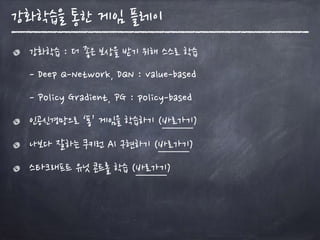 강화학습을 통한 게임 플레이
강화학습 : 더 좋은 보상을 받기 위해 스스로 학습
- Deep Q-Network, DQN : value-based
- Policy Gradient, PG : policy-based
인공신경망으로 '퐁' 게임을 학습하기 (바로가기)
나보다 잘하는 쿠키런 AI 구현하기 (바로가기)
스타크래프트 유닛 컨트롤 학습 (바로가기)